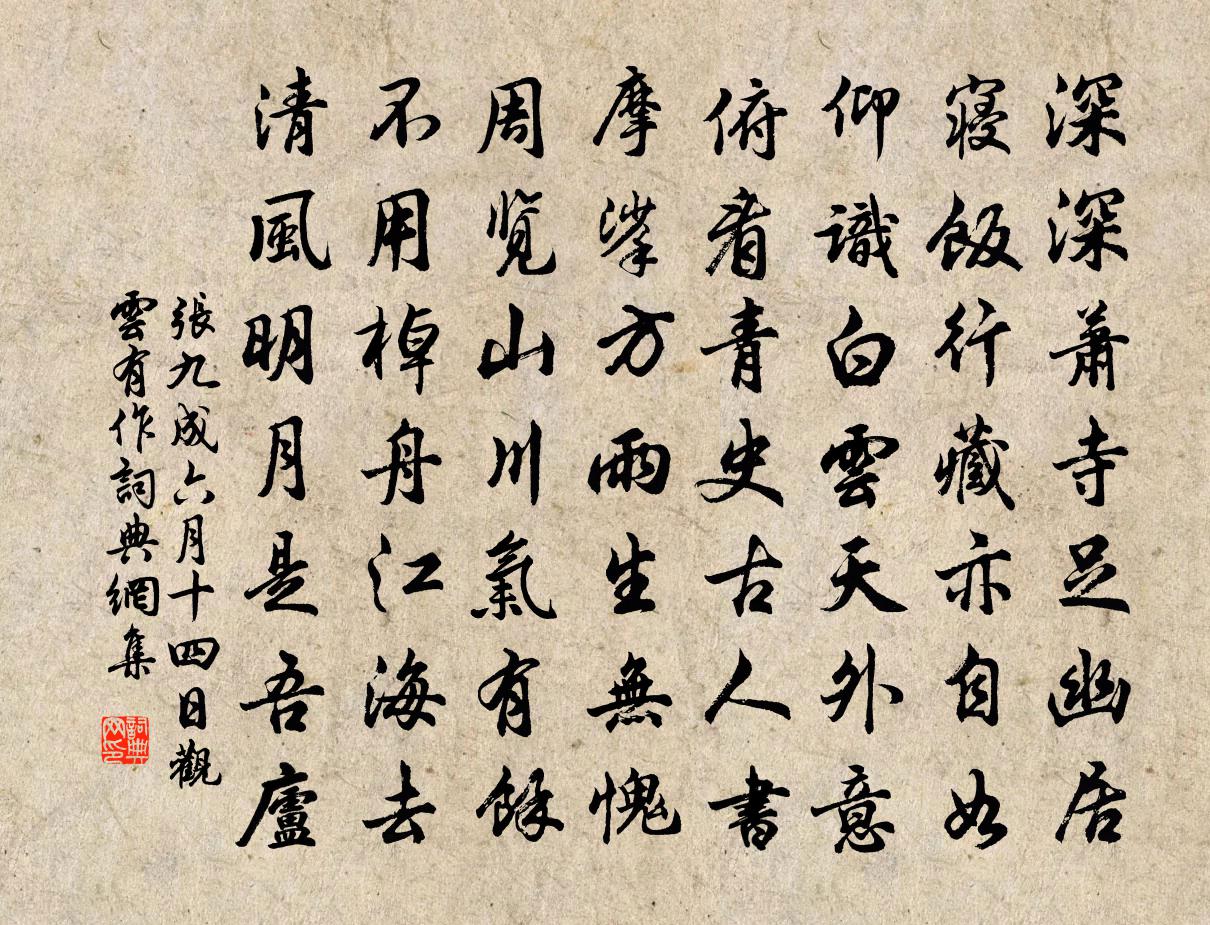 深深蕭寺足幽居
寢飯行藏亦自如
仰識白雲天外意
俯看青史古人書
摩挲方雨生無愧
周覽山川氣有餘
不用棹舟江海去
清風明月是吾廬
張九成六月十四日觀
雲有作詞典網集
詞典
网印